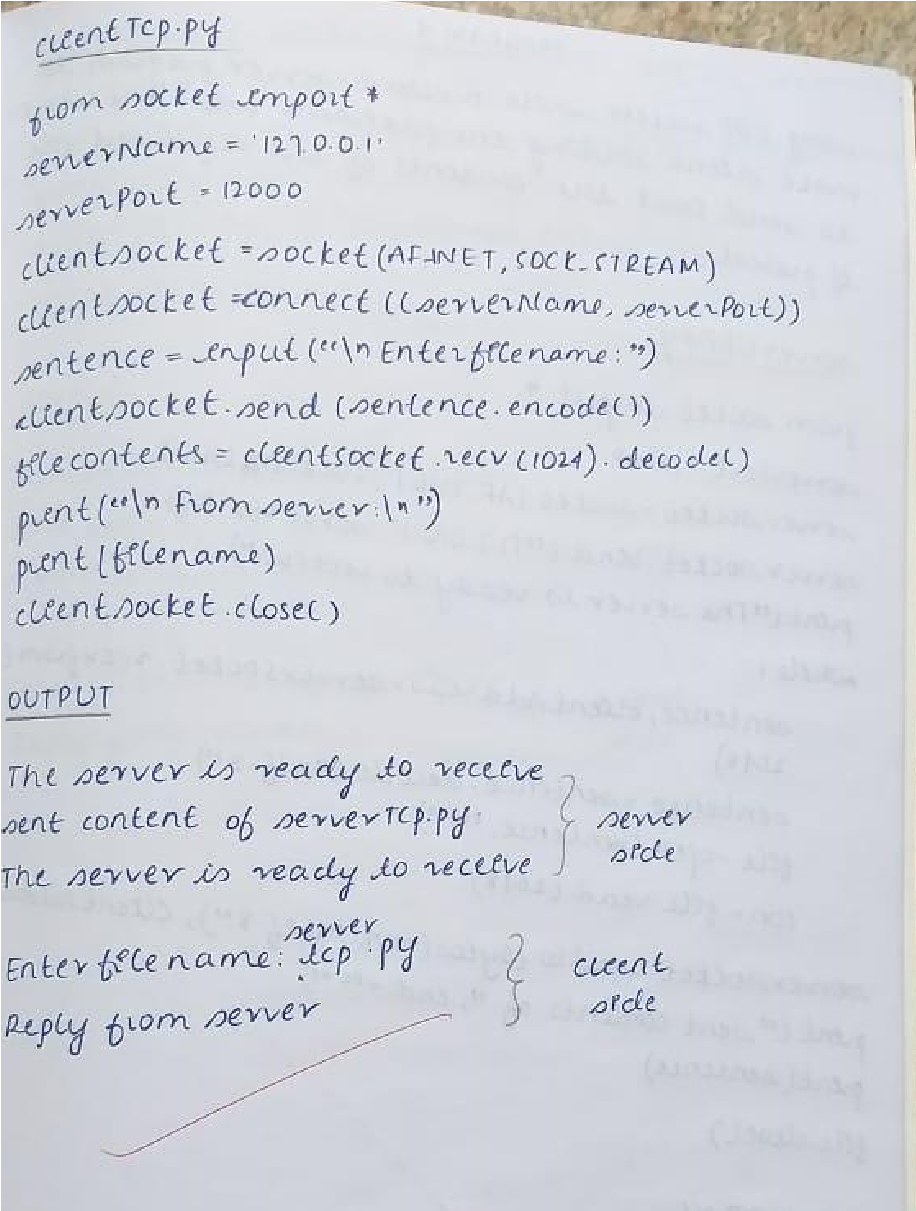 clientTcp.py
from socket import *
serverName = '127.0.0.1'
serverPort = 12000
clientsocket = socket(AF_INET, SOCK_STREAM)
clientsocket =connect ((serverName, serverPort))
sentence = input (""\n Enter filename: ")
clientsocket.send (sentence.encode())
filecontents = clientsocket.recv (1024).decode()
print (""\n From server:\n")
print (filename)
clientsocket.close()
OUTPUT
The server is ready to receive
sent content of serverTcp.py
The server is ready to receive
server side
Enter file name: server tcp.py
Reply from server
client side